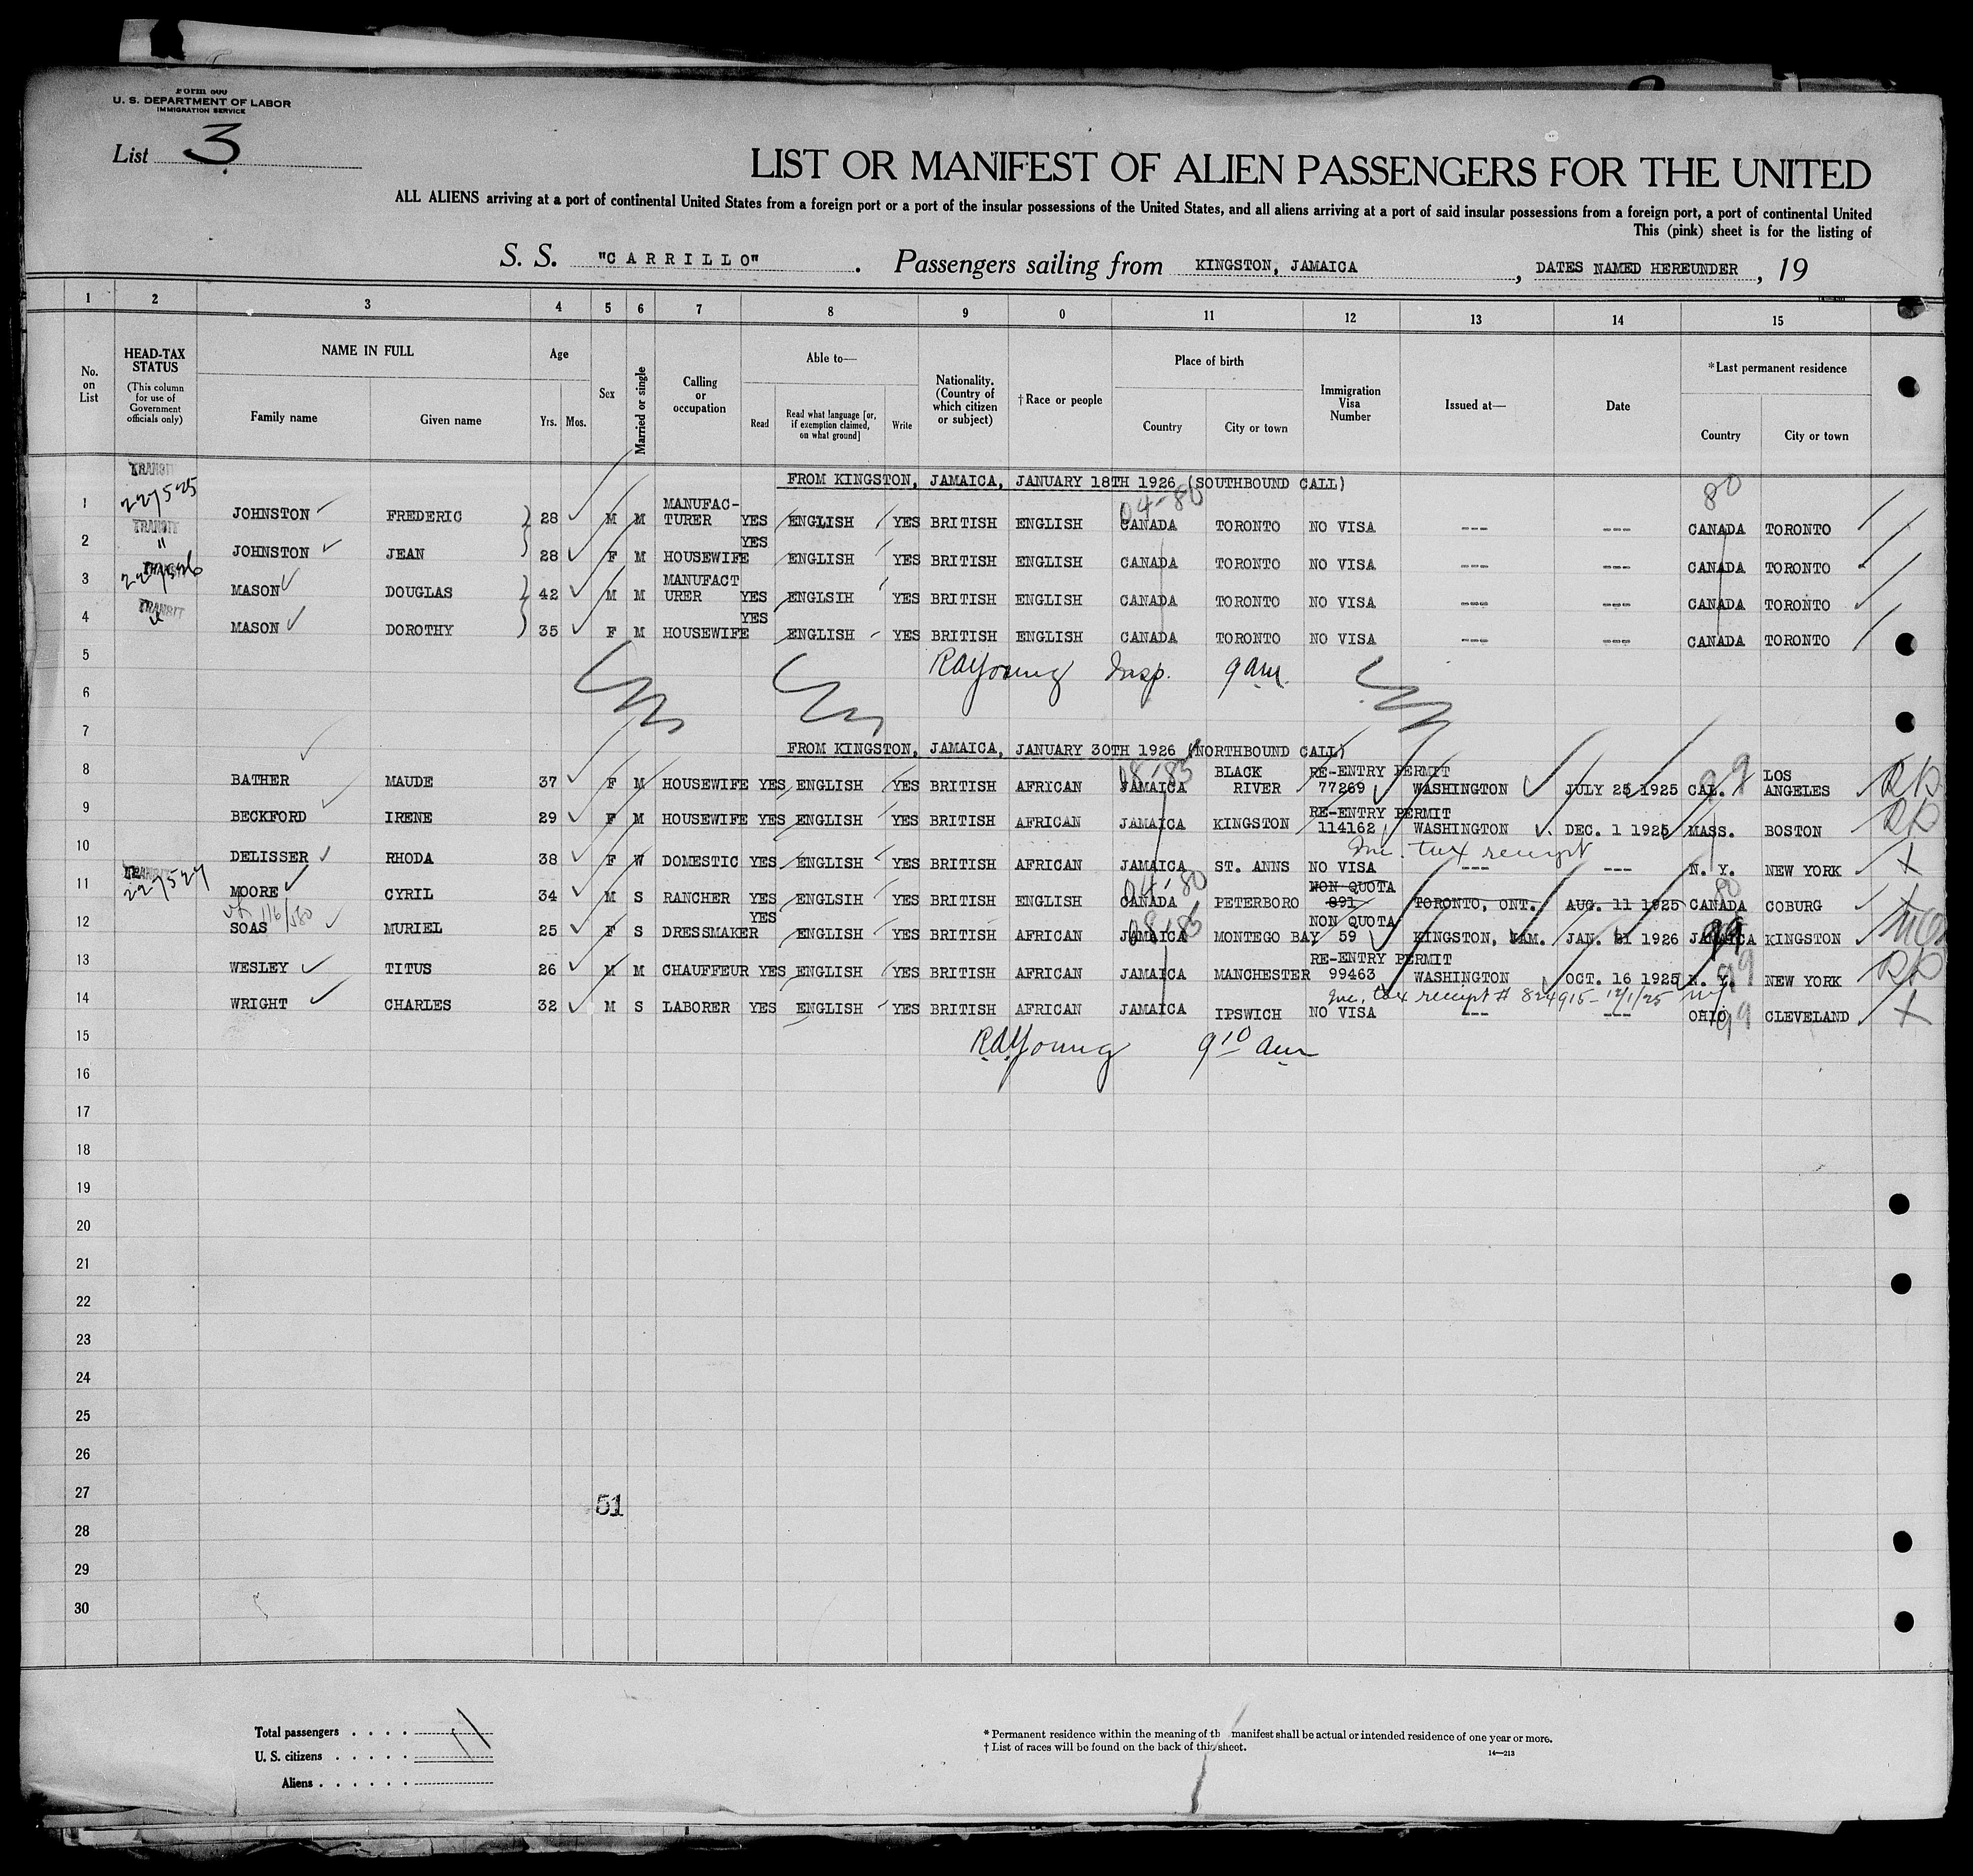 Form 500
U. S. DEPARTMENT OF LABOR
IMMIGRATION SERVICE
List 3
LIST OR MANIFEST OF ALIEN PASSENGERS FOR THE UNITED
ALL ALIENS arriving at a port of continental United States from a foreign port or a port of the insular possessions of the United States, and all aliens arriving at a port of said insular possessions from a foreign port, a port of continental United
This (pink) sheet is for the listing of
S. S. "CARRILLO". Passengers sailing from KINGSTON, JAMAICA, DATES NAMED HEREUNDER, 19
1 2 3 4 5 6 7 8 9 0 11 12 13 14 15
No. on List
HEAD-TAX STATUS (This column for use of Government officials only)
NAME IN FULL Family name Given name
Age Yrs. Mos.
Sex
Married or single
Calling or occupation
Able to— Read Read what language [or, if exemption claimed, on what ground] Write
Nationality. (Country of which citizen or subject)
†Race or people
Place of birth Country City or town
Immigration Visa Number
Issued at—
Date
*Last permanent residence Country City or town
FROM KINGSTON, JAMAICA, JANUARY 18TH 1926 (SOUTHBOUND CALL)
04-80 80
1 TRANSIT 227525 JOHNSTON FREDERIC 28 M M MANUFAC-TURER YES ENGLISH YES BRITISH ENGLISH CANADA TORONTO NO VISA --- --- CANADA TORONTO
2 TRANSIT " JOHNSTON JEAN 28 F M HOUSEWIFE YES ENGLISH YES BRITISH ENGLISH CANADA TORONTO NO VISA --- --- CANADA TORONTO
3 TRANSIT 227526 MASON DOUGLAS 42 M M MANUFACTURER YES ENGLSIH YES BRITISH ENGLISH CANADA TORONTO NO VISA --- --- CANADA TORONTO
4 TRANSIT MASON DOROTHY 35 F M HOUSEWIFE YES ENGLISH YES BRITISH ENGLISH CANADA TORONTO NO VISA --- --- CANADA TORONTO
5 RAYoung Insp. 9 am.
6
7 FROM KINGSTON, JAMAICA, JANUARY 30TH 1926 (NORTHBOUND CALL)
8 BATHER MAUDE 37 F M HOUSEWIFE YES ENGLISH YES BRITISH AFRICAN 08-83 JAMAICA BLACK RIVER RE-ENTRY PERMIT 77269 WASHINGTON JULY 25 1925 CAL. 99 LOS ANGELES RP
9 BECKFORD IRENE 29 F M HOUSEWIFE YES ENGLISH YES BRITISH AFRICAN JAMAICA KINGSTON RE-ENTRY PERMIT 114162 WASHINGTON DEC. 1 1925 MASS. BOSTON RP
Inc. tax receipt
10 DELISSER RHODA 38 F W DOMESTIC YES ENGLISH YES BRITISH AFRICAN JAMAICA ST. ANNS NO VISA --- --- N. Y. NEW YORK X
11 TRANSIT 227527 MOORE CYRIL 34 M S RANCHER YES ENGLSIH YES BRITISH ENGLISH 04-80 CANADA PETERBORO NON QUOTA 891 TORONTO, ONT. AUG. 11 1925 80 CANADA COBURG
12 SOAS MURIEL 25 F S DRESSMAKER YES ENGLISH YES BRITISH AFRICAN 08-83 JAMAICA MONTEGO BAY NON QUOTA 59 KINGSTON, JAM. JAN. 21 1926 JAMAICA 99 KINGSTON
13 WESLEY TITUS 26 M M CHAUFFEUR YES ENGLISH YES BRITISH AFRICAN JAMAICA MANCHESTER RE-ENTRY PERMIT 99463 WASHINGTON OCT. 16 1925 N. Y. 99 NEW YORK RP
Inc. tax receipt # 824915 - 12/1/25 ny
14 WRIGHT CHARLES 32 M S LABORER YES ENGLISH YES BRITISH AFRICAN JAMAICA IPSWICH NO VISA --- --- OHIO 99 CLEVELAND X
15 RAYoung 9 10 am
16
17
18
19
20
21
22
23
24
25
26
27 51
28
29
30
Total passengers . . . . 11
U. S. citizens . . . . .
Aliens . . . . . .
* Permanent residence within the meaning of th manifest shall be actual or intended residence of one year or more.
† List of races will be found on the back of this sheet.
14—213